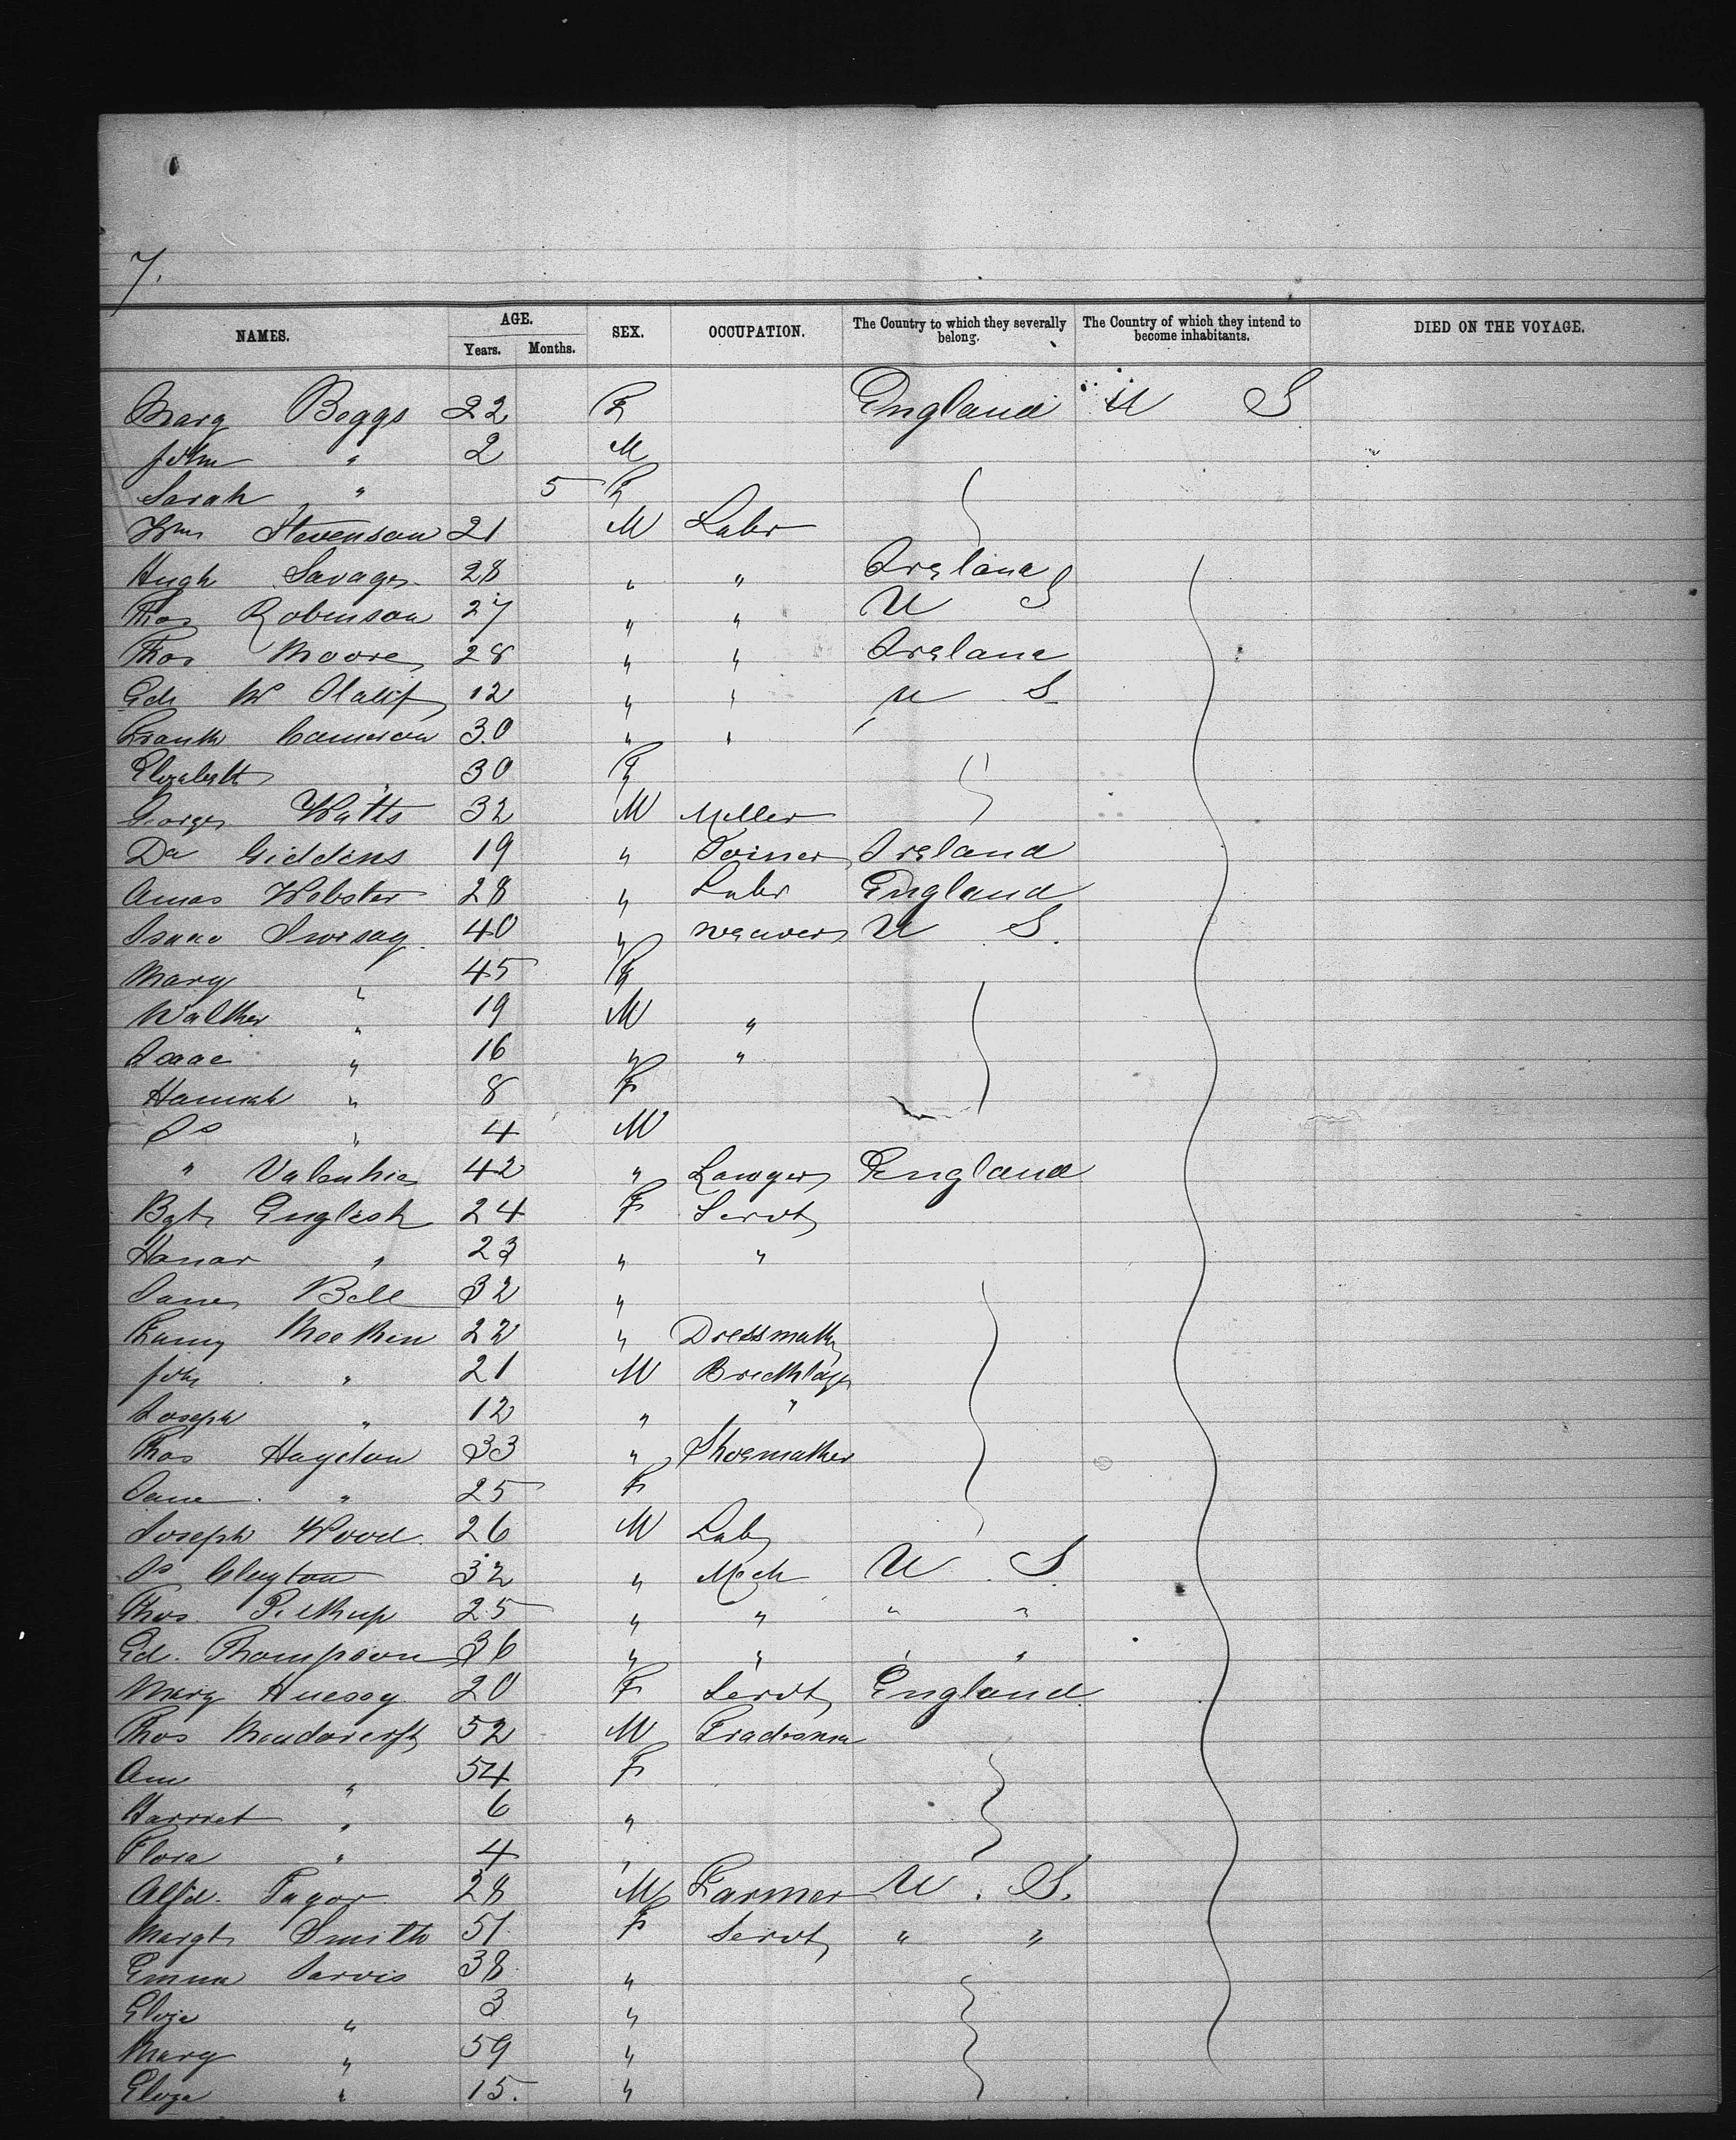 7.
NAMES. AGE. Years. Months. SEX. OCCUPATION. The Country to which they severally belong. The Country of which they intend to become inhabitants. DIED ON THE VOYAGE.
Marg Boggs 22 F England U S
John " 2 M
Sarah " 5 F
Wm Stevenson 21 M Labr
Hugh Savage 28 " " Ireland
Thos Robinson 27 " " U S
Thos Moore 28 " " Ireland
12 " " U S
Frank Cameron 30 " "
Elizabeth " 30 F
George Watts 32 M Miller
Da Giddens 19 " Joiner Ireland
Amos Webster 28 " Labr England
Isaac 40 " weaver U S
Mary " 45 F
Walther " 19 M "
Isaac " 16 " "
Hannah " 8 F
Js " 4 M
" 42 " Lawyer England
Bgt English 24 F Servt
Hanar " 23 " "
Jane Bell 32 "
Fanny 22 " Dressmak
John " 21 M
Joseph " 12 " "
Thos Haydon 33 " Shoemaker
Jane " 25 F
Joseph Wood 26 M Lab
Js Clayton 32 " Mech U S
Thos 25 " " " "
Ed. Thompson 36 " " " "
Mary 20 F Servt England
Thos 52 M
Ann " 54 F
Harriet " 6 "
Flora " 4 "
Alfd. 28 M Farmer U. S.
Margt Smith 51 F Servt " "
Emma Jarvis 38 "
Eliza " 3 "
Mary " 59 "
Eliza " 15. "